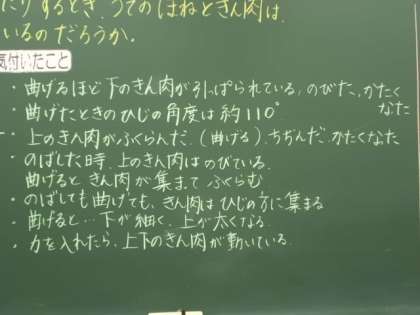 たりするとき、うでのほねときん肉は、
いるのだろうか。
気付いたこと
・曲げるほど下のきん肉が引っぱられている、のびた、かたくなった
・曲げたときのひじの角度は約110°
・上のきん肉がふくらんだ.(曲げる).ちぢんだ.かたくなった
・のばした時、上のきん肉はのびている.
曲げると、きん肉が集まって ふくらむ
・のばしても曲げても、きん肉はひじの方に集まる
・曲げると…下が細く、上が太くなる.
・力を入れたら、上下のきん肉が動いている.